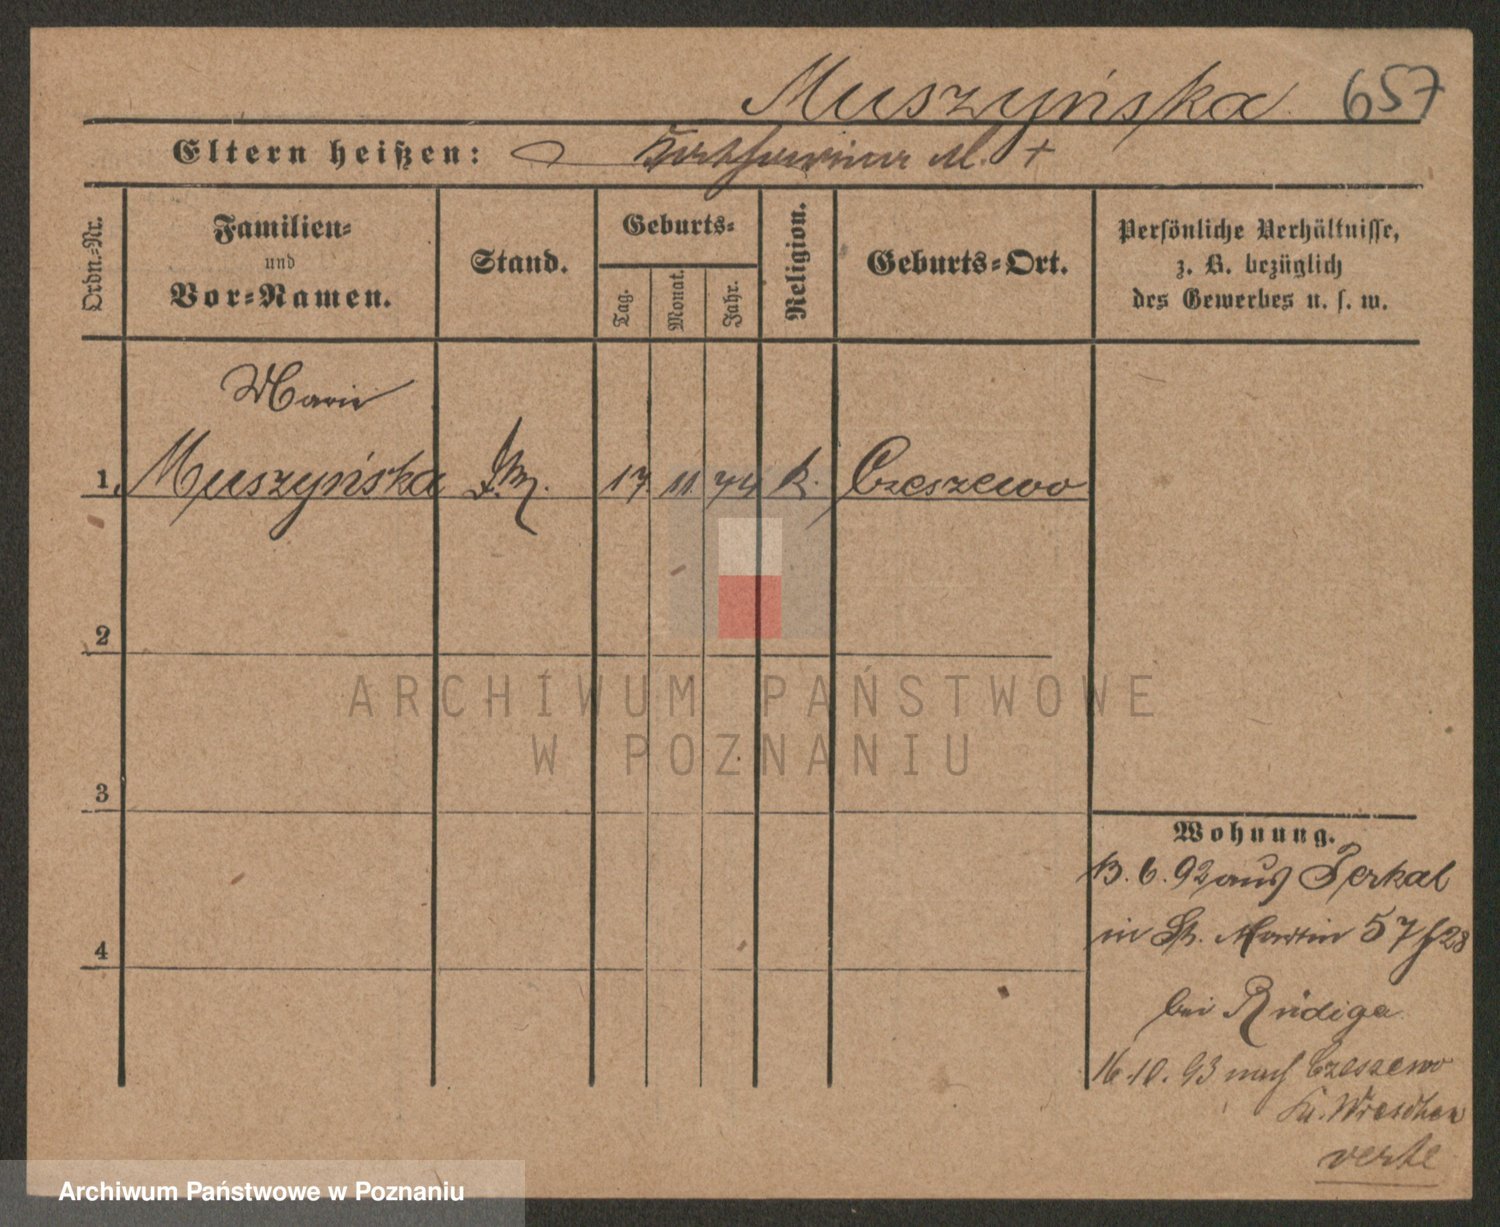 Muszyńska 657
Eltern heißen: Katharina M. +
Ordn.-Nr.
Familien-
und
Vor-Namen.
Stand.
Geburts-
Tag.
Monat.
Jahr.
Religion.
Geburts-Ort.
Persönliche Verhältnisse,
z. B. bezüglich
des Gewerbes u. s. w.
Marie
1. Muszyńska 17. 11. 74 k. Czeszewo
2
3
4
Wohnung.
13. 6. 92 aus Perkal
in St. Martin 57
bei Rüdiga
16. 10. 93 nach Czeszewo
Kr. Wreschen
verte
ARCHIWUM PAŃSTWOWE
W POZNANIU
Archiwum Państwowe w Poznaniu